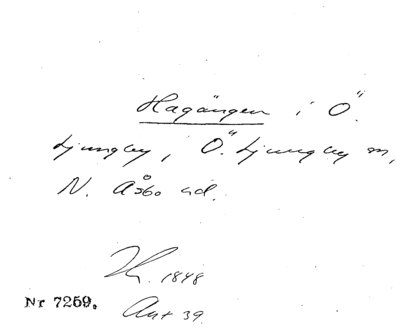 Hagängen i Ö.
Ljungby, Ö. Ljungby sn,
N. Åsbo hd.
1848
Nr 7259. Ant 39